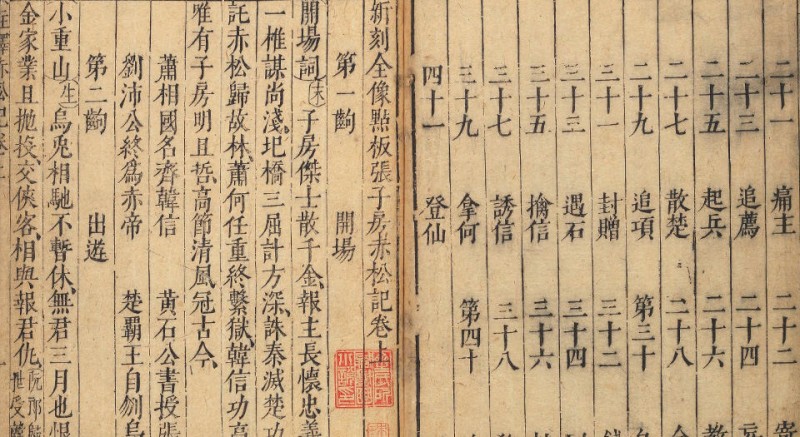 二十一 痛主 二十二 寄
二十三 追薦 二十四
二十五 起兵 二十六 教
二十七 散楚 二十八
二十九 追項 第三十
三十一 封贈 三十二
三十三 遇石 三十四
三十五 擒信 三十六
三十七 誘信 三十八
三十九 拿何 第四十
四十一 登仙
新刻全像點板張子房赤松記卷上
第一齣 開場
開場詞 末 子房傑士散千金、報主長懷忠義
一椎謀尚淺、圯橋三屈計方深、誅秦滅楚功
託赤松歸故林、蕭何任重終繫獄、韓信功高
唯有子房明且哲、高節清風冠古今、
蕭相國名齊韓信 黃石公書授張
劉沛公終爲赤帝 楚覇王自刎烏
第二齣 出遊
小重山 生 烏兎相馳不暫休、無君三月也恨
金家業且抛投、交俠客、相與報君仇、阮郎歸 世受